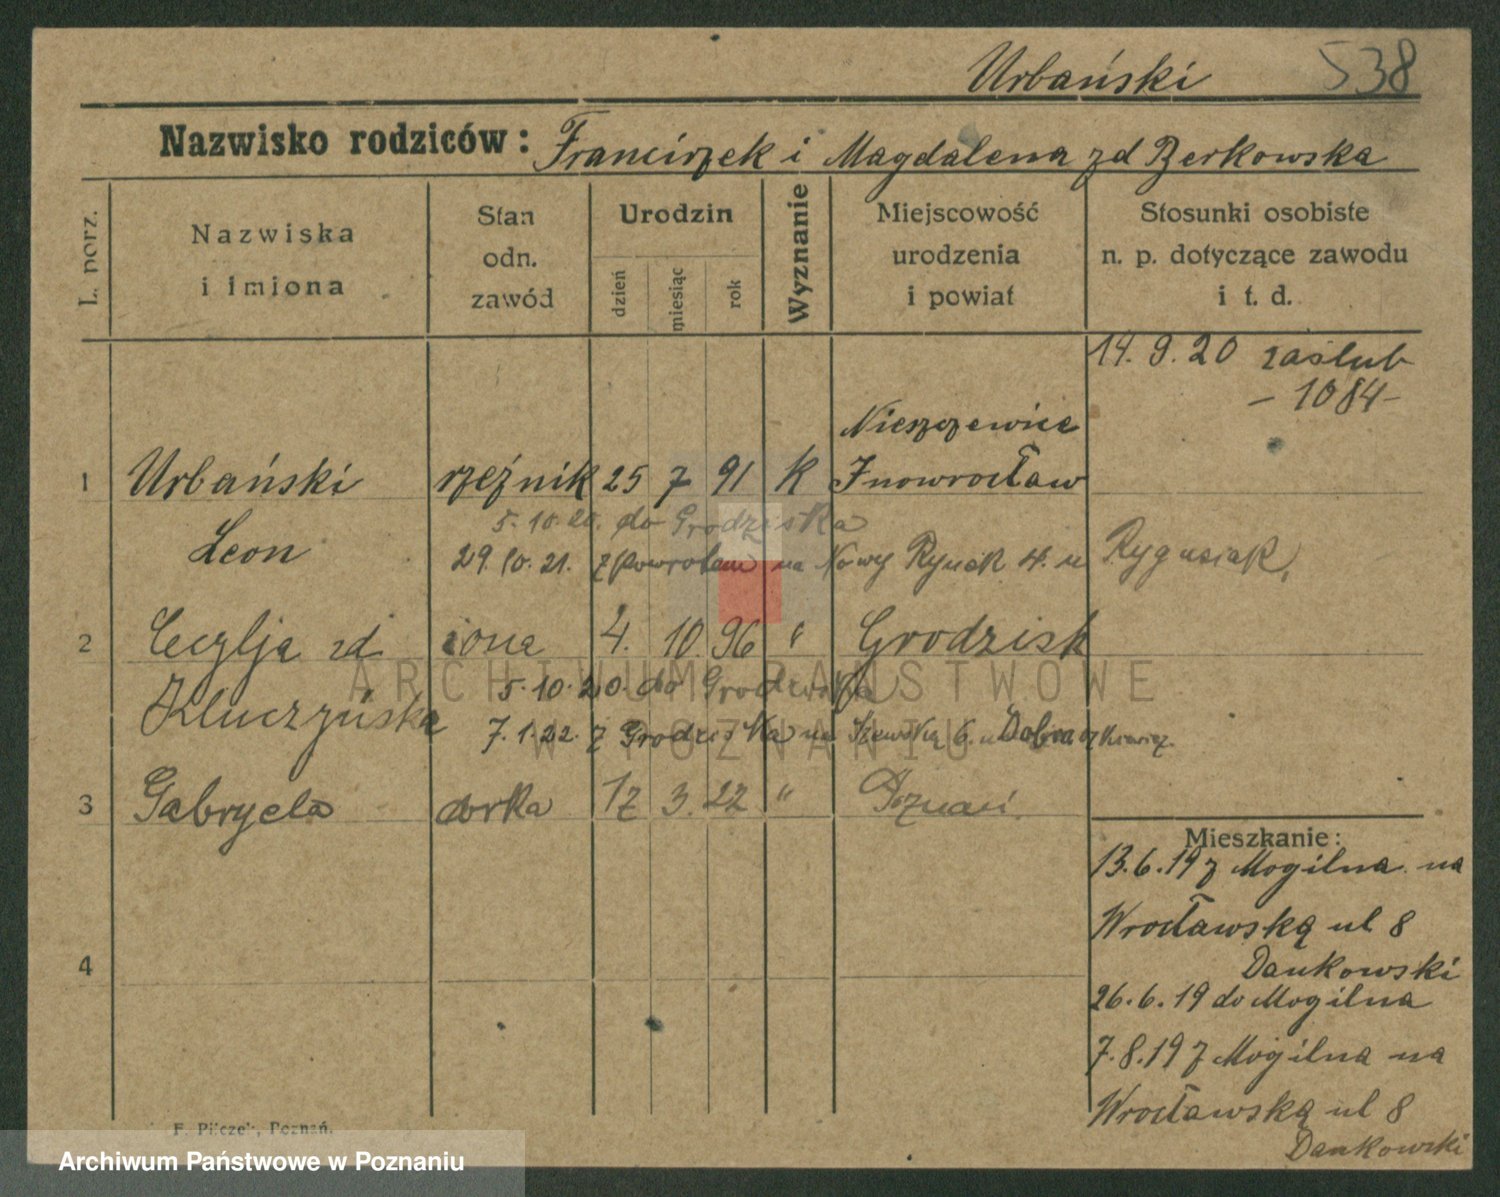 Urbański 538
Nazwisko rodziców: Franciszek i Magdalena zd Berkowska
L. porz.
Nazwiska
i imiona
Stan
odn.
zawód
Urodzin
dzień
miesiąc
rok
Wyznanie
Miejscowość
urodzenia
i powiat
Stosunki osobiste
n. p. dotyczące zawodu
i t. d.
14. 9. 20 zaślub
- 1084 -
Nieszczewice
1 Urbański rzeźnik 25 7 91 k Inowrocław
5. 10. 20. do Grodziska
Leon
29. 10. 21. z powrotem na Nowy Rynek 4. u Rygusiak,
2 Cecylja zd żona 4. 10. 96 " Grodzisk
5. 10. 20. do Grodziska
Kluczyńska
7. 1. 22. z Grodziska na Szewską 6. u
3 Gabryela corka 12 3. 22 " Poznań.
Mieszkanie:
13. 6. 19 z Mogilna na
Wrocławską ul 8
Dankowski
4
26. 6. 19 do Mogilna
7. 8. 19 z Mogilna na
Wrocławską ul 8
Dankowski
F. Pilczek, Poznań.
ARCHIWUM PAŃSTWOWE
W POZNANIU
Archiwum Państwowe w Poznaniu